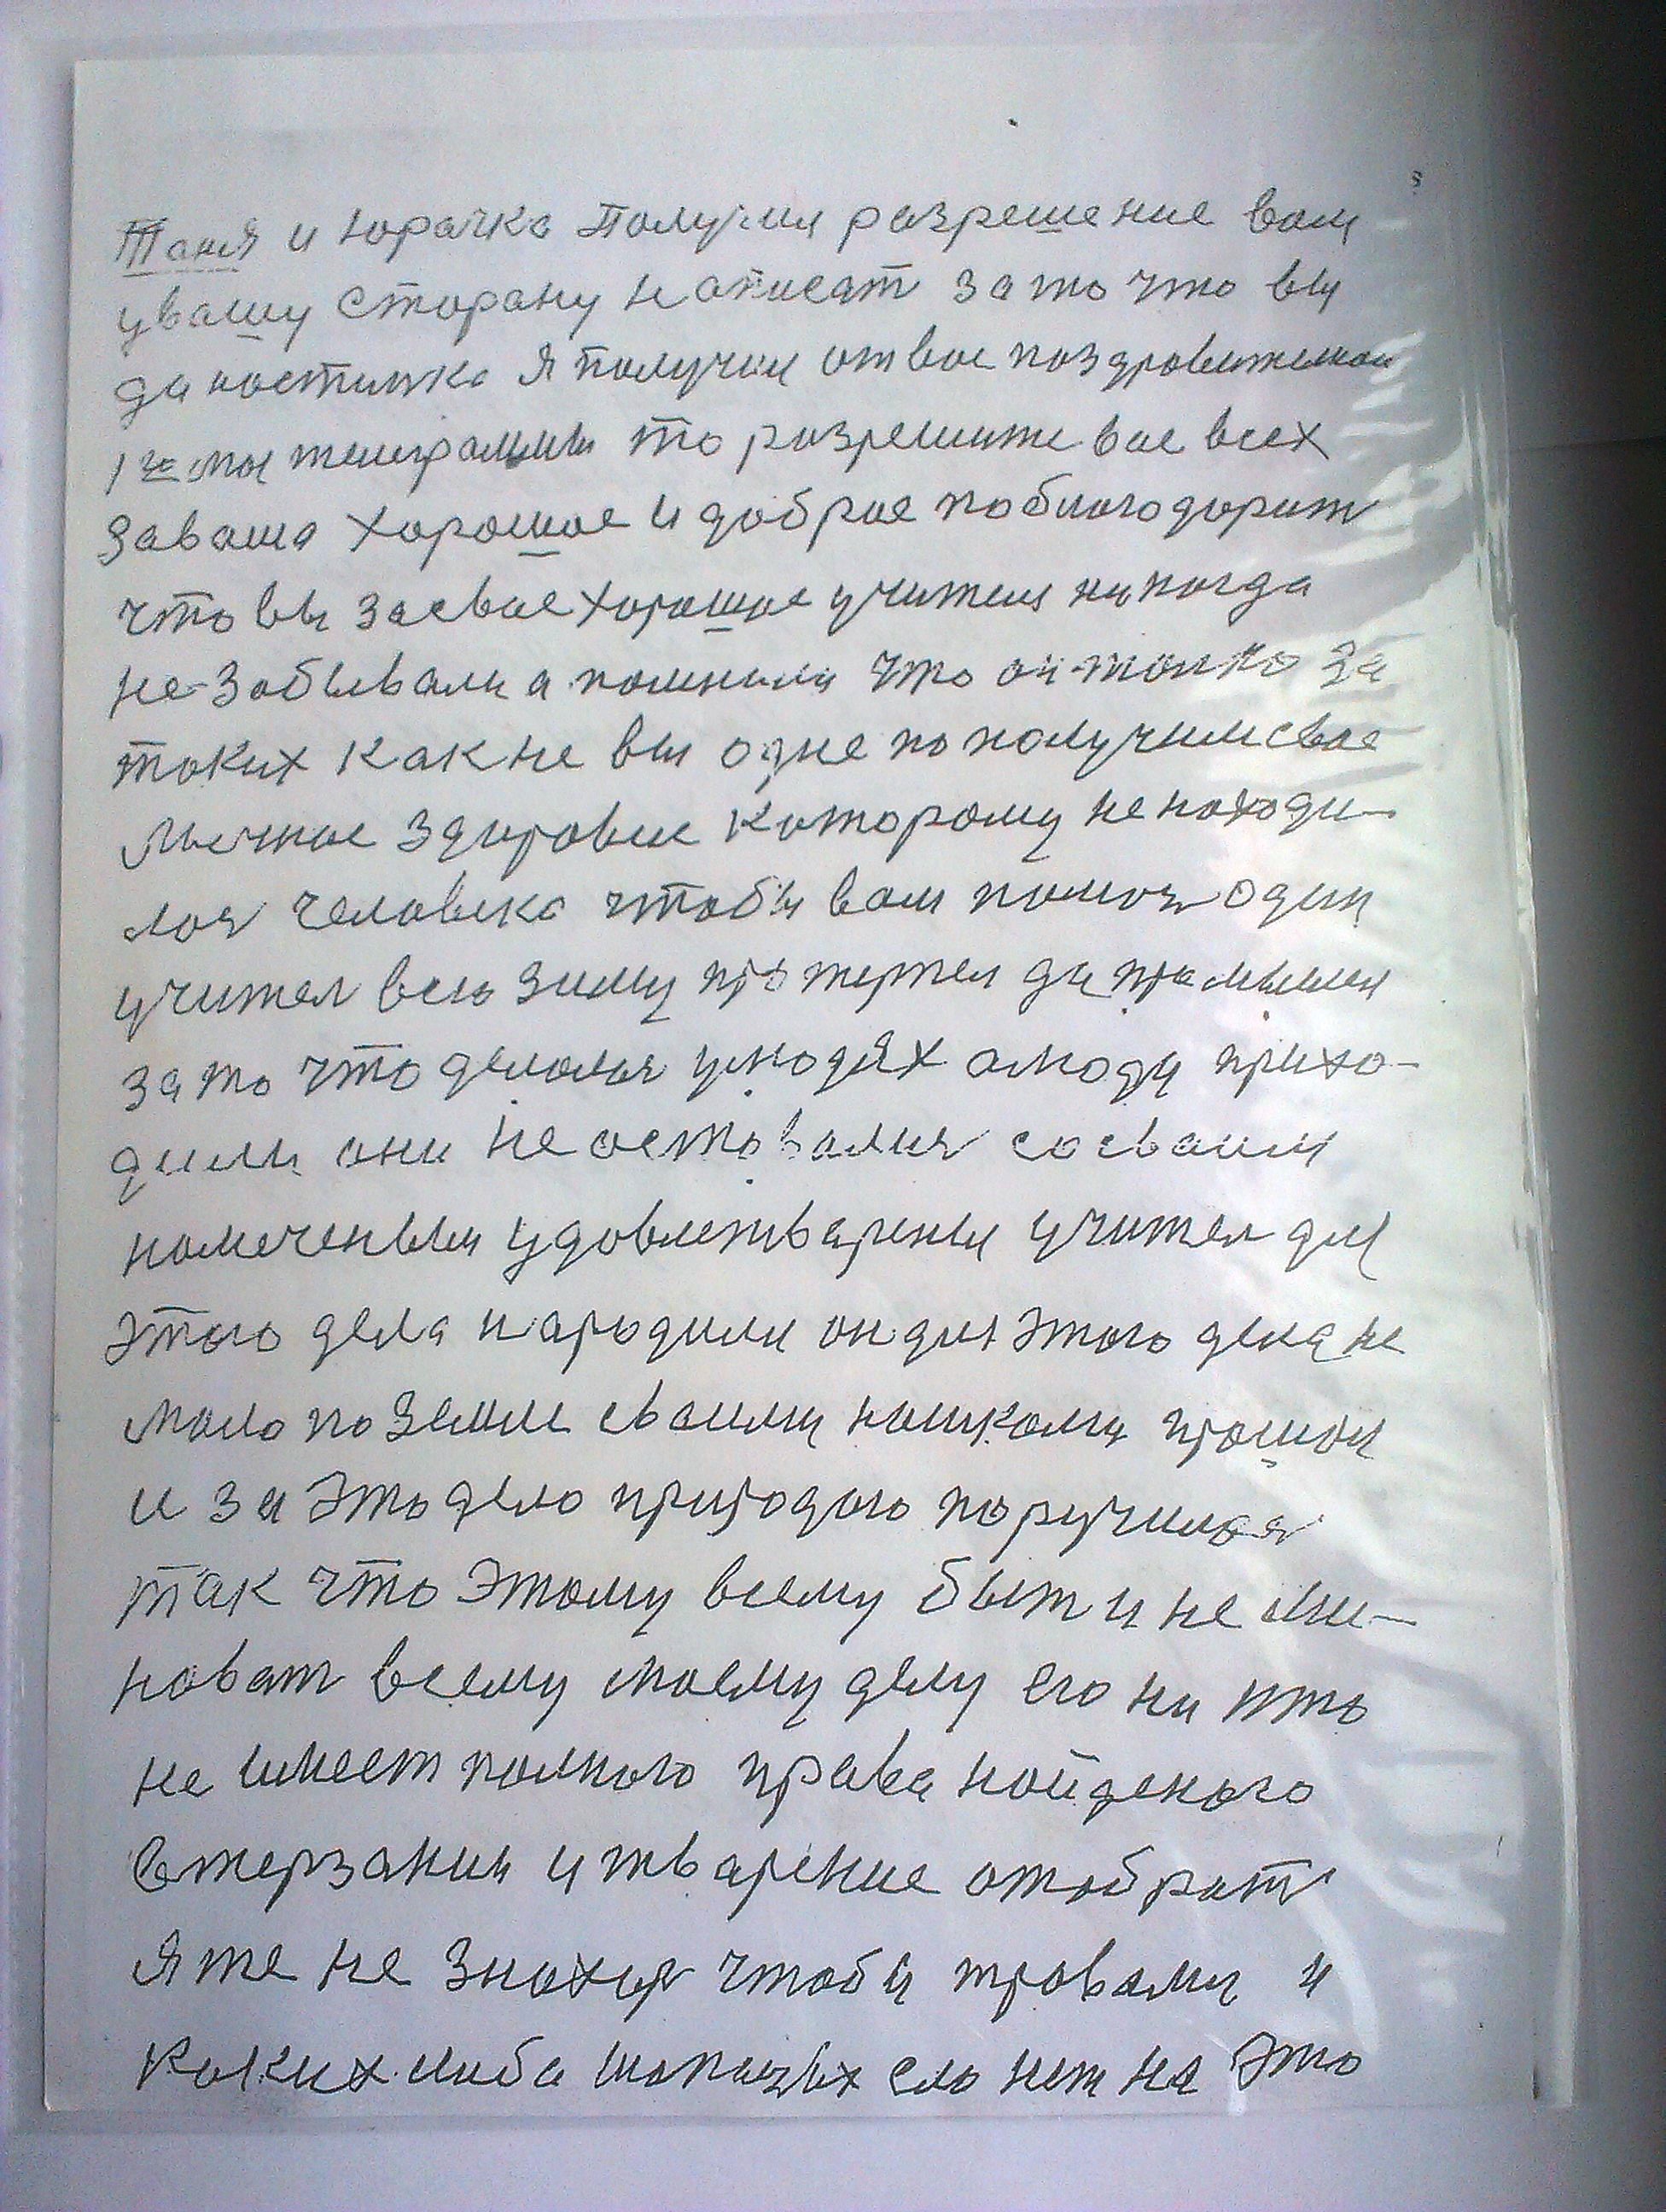 Таня и Юрачка Получил разрешение вам
увашу сторану написат за то что вы
да настипка Я получил от вас поздровительнои
телеграммы то разрешите вас всех
Заваша хорошое и доброе поблогодорит
что вы засвое хорошое учителя никогда
не забывали а помнили что он толко за
токих как не вы одне по получили свое
личное здоровие которому не находи-
лся человека чтобы вам помоч один
учител всю зиму протерпел да промыслил
за то что делолся улюдях алюди прихо-
дили они не оставалися сосваим
намеченым удовлетварены учител для
этого дела народили он для этого дела не
мало по земле сваими ношкоми прошол
и за это дело природого поручился
так что этому всему быт и не ми-
новат всему моему делу его ни кто
не имеет полного права найденого
в терзании и тварение отобрат
Я те не знахор чтобы травами и
каких либа шопчых сло нет на это